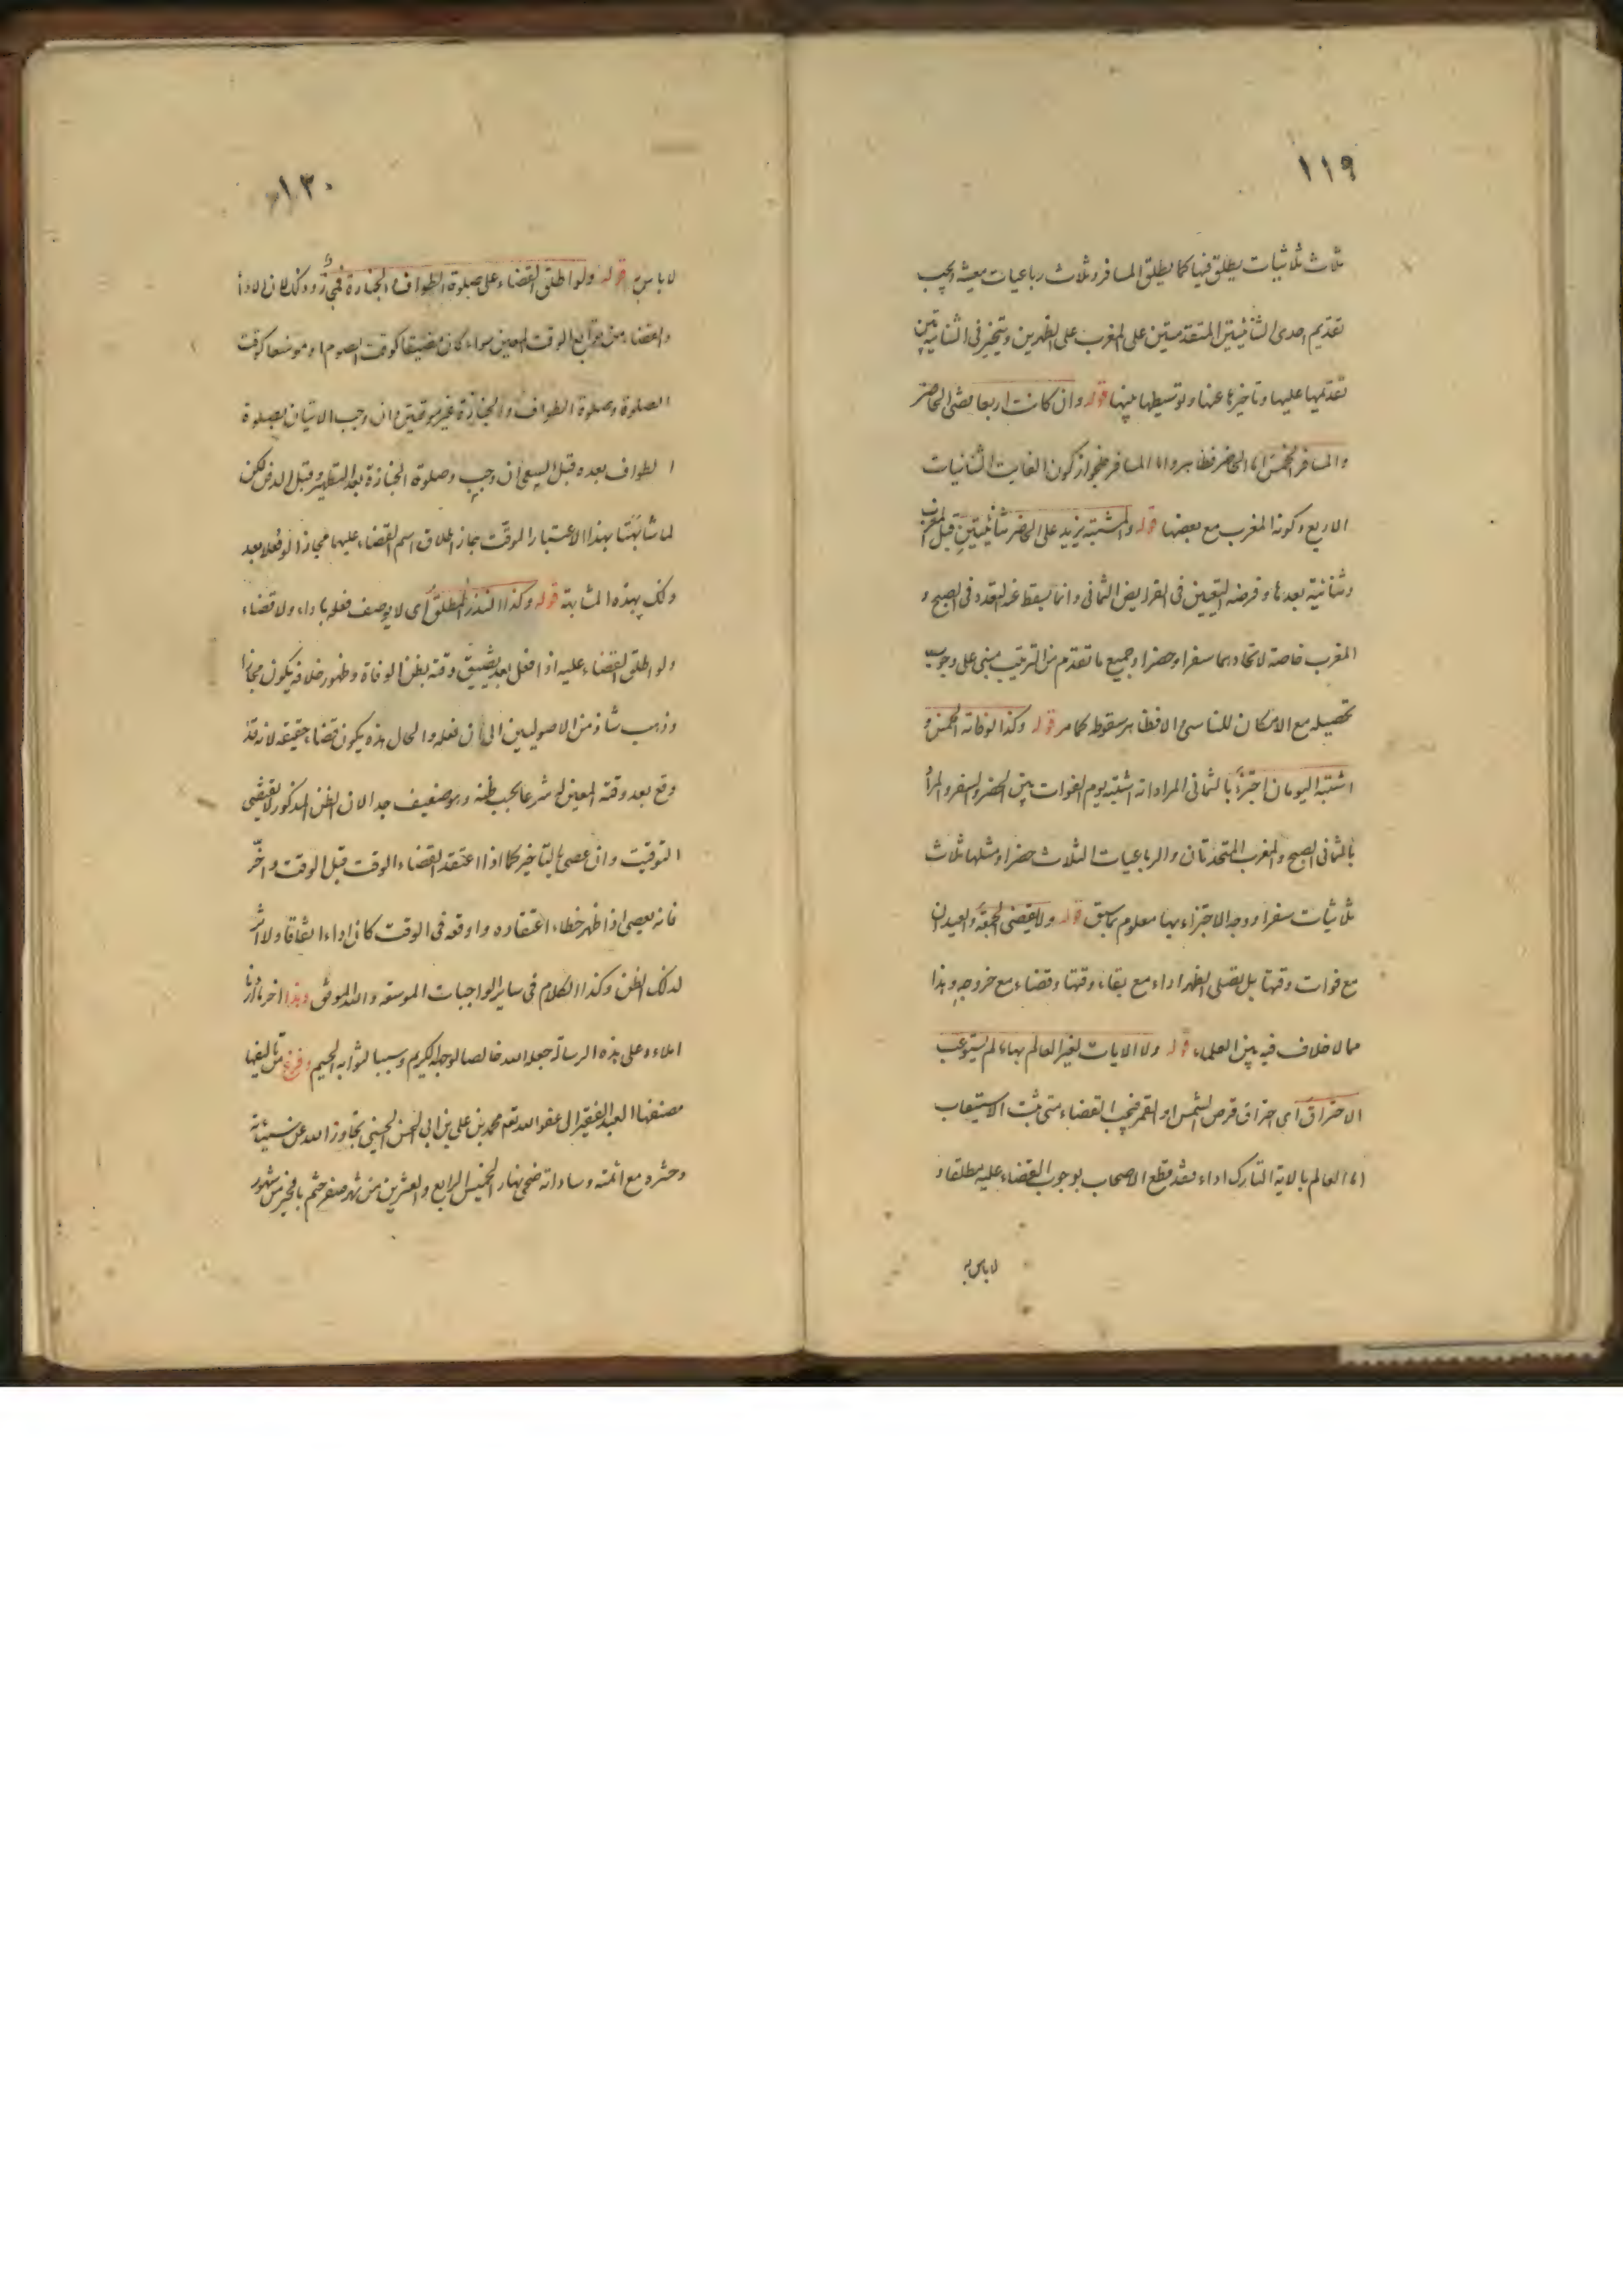 ١١٩
ثلاث ثلاثيات يطلق فيها كما يطلق المسافر وثلاث رباعيات معينة ويجب
تقديم احدى الثنائيتين المتقدمتين على المغرب على الظهرين ويتخير في الثنائيتين بين
تقديمها عليها وتاخيرها عنها وتوسيطها بينها قوله وان كانت اربعا قضى الحاضر
والمسافر الخمس اما الحاضر فظاهر واما المسافر فلجواز كون الفايت الثنائيات
الاربع وكونه المغرب مع بعضها قوله والمشتبه يزيد على الحاضر ثنائيتين قبل المغرب
وثنائية بعدها وفرضه التعيين في الفرايض الثماني وانما يسقط عنه التعدد في الصبح و
المغرب خاصة لاتحادهما سفرا وحضرا وجميع ما تقدم من الترتيب مبنى على وجوب
تحصيله مع الامكان للناسي والا فظاهر سقوطه كما مر قوله وكذا لو فاته الخمس و
اشتبه اليومان اجتزء بالثماني المراد انه اشتبه يوم الفوات بين الحضر والسفر والمراد
بالثماني الصبح والمغرب المتحدتان والرباعيات الثلاث حضرا ومثلها ثلاث
ثلاثيات سفرا ووجه الاجتزاء بها معلوم مما سبق قوله ولا يقضى الجمعة والعيدان
مع فوات وقتها بل يصلى الظهر اداء مع بقاء وقتها وقضاء مع خروجه وهذا
مما لا خلاف فيه بين العلماء قوله ولا الايات لغير العالم بها ما لم يستوعب
الاحتراق اى احتراق قرص الشمس او القمر فيجب القضاء متى ثبت الاستيعاب
اما العالم بالاية التارك اداء فقد قطع الاصحاب بوجوب القضاء عليه مطلقا و
لا باس به
١٢٠
لا باس به قوله ولو اطلق القضاء على صلوة الطواف والجنازة فمجاز وذلك لان الادأ
والقضاء من توابع الوقت المعين سواء كان مضيقا كوقت الصوم او موسعا كوقت
الصلوة وصلوة الطواف والجنازة غير موقتين وان وجب الاتيان بصلوة
الطواف بعده قبل السعى ان وجب وصلوة الجنازة بعد التطهير وقبل الدفن لكن
لما شابهتا بهذا الاعتبار الموقت جاز اطلاق اسم القضاء عليهما مجازا لو فعلا بعد
ذلك بهذه المشابهة قوله وكذا النذر المطلق اى لا يوصف فعله باداء ولا قضاء
ولو اطلق القضاء عليه اذا فعل بعد تضييق وقته بظن الوفاة وظهور خلافه يكون مجازا
وذهب شاذ من الاصوليين الى ان فعله والحال هذه يكون قضاء حقيقة لانه قد
وقع بعد وقته المعين له شرعا بحسب ظنه وهو ضعيف جدا لان الظن المذكور لا يقتضي
التوقيت وان عصى بالتاخير كما اذا اعتقد انقضاء الوقت قبل الوقت واخّر
فانه يعصى اذا ظهر خطاء اعتقاده واوقعه في الوقت كان اداء اتفاقا ولا اثر
لذلك الظن وكذا الكلام في ساير الواجبات الموسعة والله الموفق وهذا اخر ما اردنا
املاءه على هذه الرسالة جعله الله خالصا لوجهه الكريم وسببا لثوابه الجسيم وفرغ من تاليفها
مصنفها العبد الفقير الى عفو الله تعم محمد بن علي بن ابي الحسن الحسيني تجاوز الله عن سيئاته
وحشره مع ائمته وساداته ضحى نهار الخميس الرابع والعشرين من شهر صفر ختم بالخير من شهور